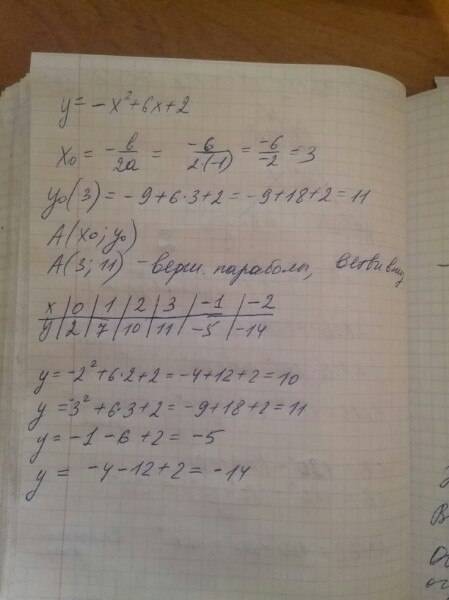 y = -x² + 6x + 2
x₀ = -b/2a = -6/2·(-1) = -6/-2 = 3
y₀(3) = -9 + 6·3 + 2 = -9 + 18 + 2 = 11
A(x₀; y₀)
A(3; 11) - верш. параболы, ветви вниз
x | 0 | 1 | 2 | 3 | -1 | -2
y | 2 | 7 | 10 | 11 | -5 | -14
y = -2² + 6·2 + 2 = -4 + 12 + 2 = 10
y = -3² + 6·3 + 2 = -9 + 18 + 2 = 11
y = -1 - 6 + 2 = -5
y = -4 - 12 + 2 = -14